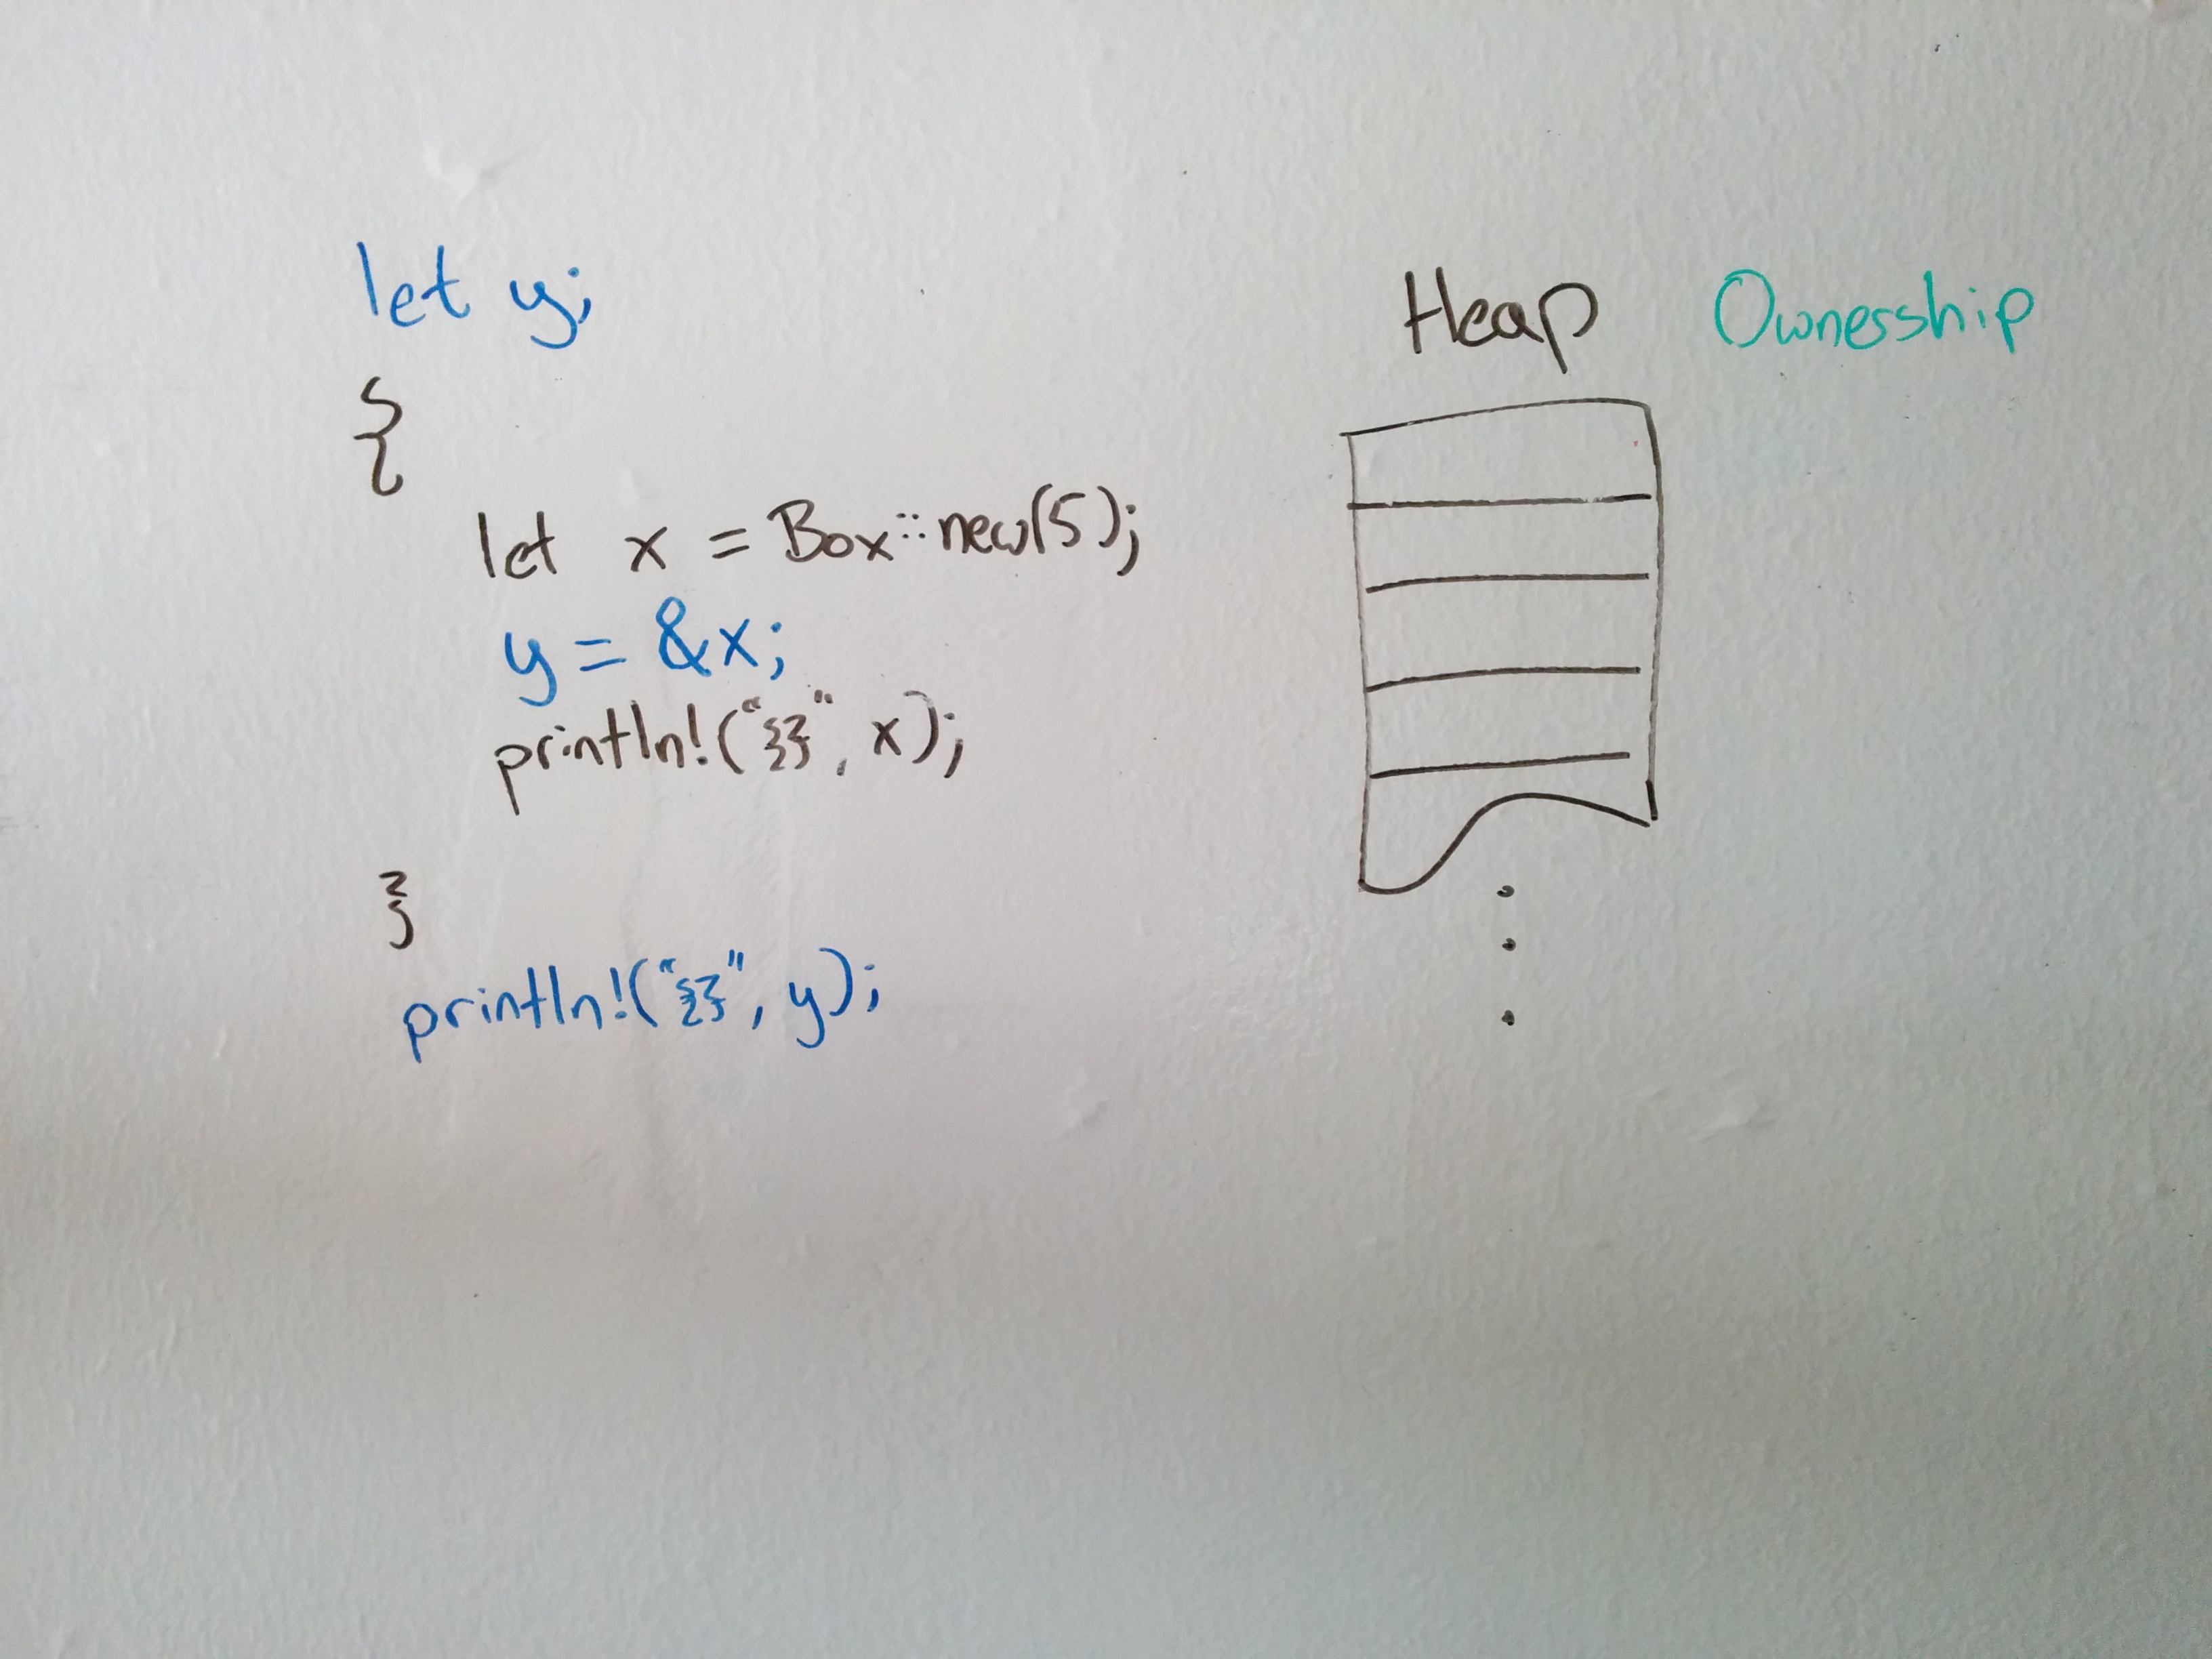 let y;
{
let x = Box::new(5);
y = &x;
println!("{}", x);
}
println!("{}", y);
Heap
Ownership